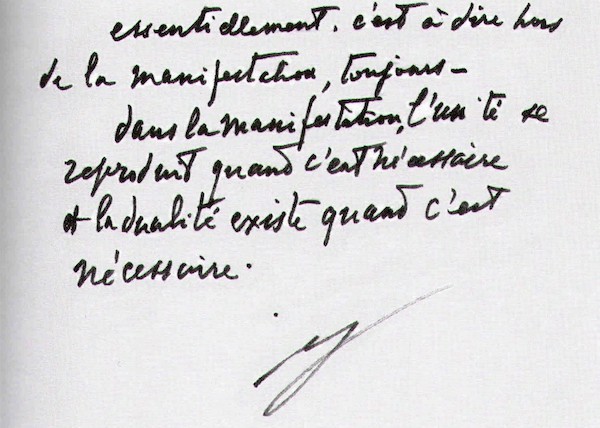 essentiellement. c'est à dire hors
de la manifestation, toujours —
dans la manifestation, l'unité se
reproduit quand c'est nécessaire
et la dualité existe quand c'est
nécessaire.